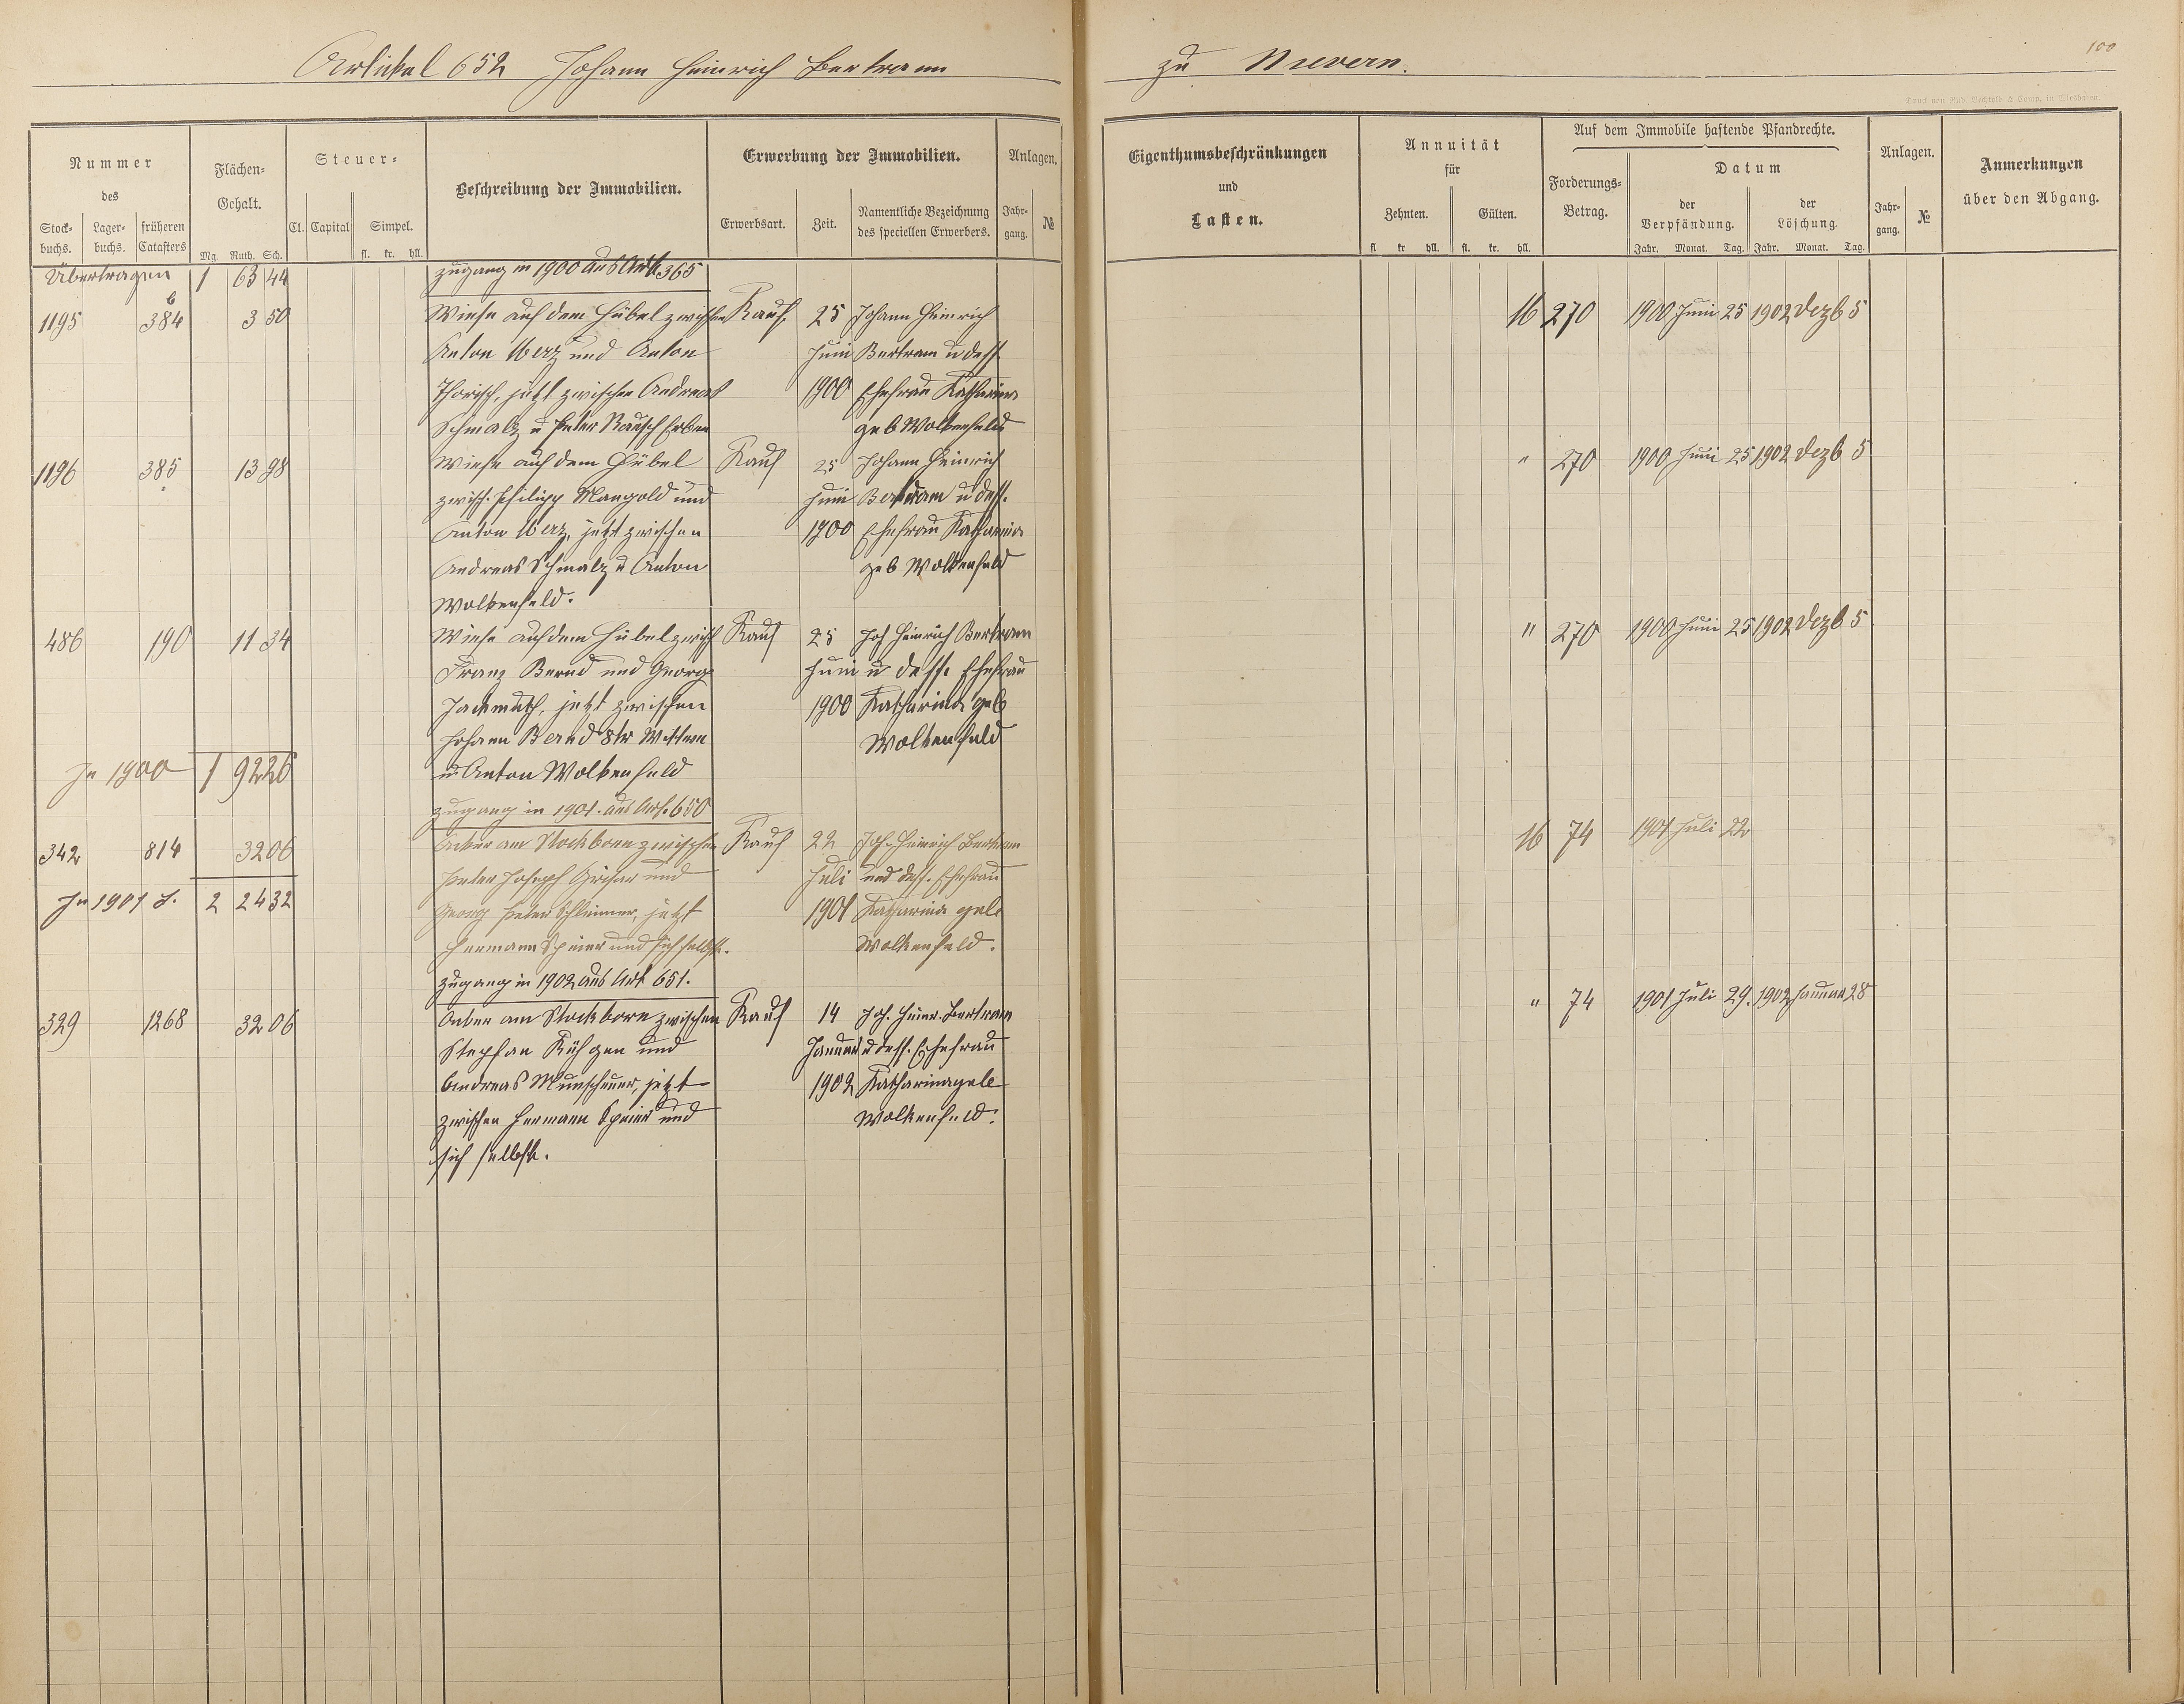 100
Artickel 652 Johann Heinrich Bertram zu Nievern.
Druck von Rud. Bechtold & Comp. in Wiesbaden.
Nummer
des
Stock-
buchs.
Lager-
buchs.
früheren
Catasters
Flächen-
Gehalt.
Mg. Ruth. Sch.
Steuer-
Cl. Capital Simpel.
fl. kr. hll.
Beschreibung der Immobilien.
Erwerbung der Immobilien.
Erwerbsart. Zeit.
Namentliche Bezeichnung
des speciellen Erwerbers.
Anlagen.
Jahr-
gang.
№
Eigenthumsbeschränkungen
und
Lasten.
Annuität
für
Zehnten. Gülten.
fl kr hll. fl. kr. hll.
Auf dem Immobile haftende Pfandrechte.
Forderungs-
Betrag.
Datum
der
Verpfändung.
der
Löschung.
Jahr. Monat. Tag. Jahr. Monat. Tag.
Anlagen.
Jahr-
gang.
№
Anmerkungen
über den Abgang.
Übertragen 1 63 44 Zugang in 1900 aus Art 365
b
1195 384 3 50 Wiese auf dem Hübel zwischen Kauf. 25 Johann Heinrich 16 270 1900 Juni 25 1902 Dezb 5
Anton Merz und Anton Juni Bertram u dess.
jetzt zwischen Andreas 1900 Ehefrau Katharina
Schmalz u Peter Rausch Erben geb Wolkenfeld
1196 385 13 98 Wiese auf dem Hübel Kauf 25 Johann Heinrich " 270 1900 Juni 25 1902 Dezb 5
zwisch. Philipp Mangold und Juni Bertram u dess.
Anton Merz, jetzt zwischen 1900 Ehefrau Katharina
Andreas Schmalz u Anton geb Wolkenfeld
Wolkenfeld.
486 190 11 34 Wiese auf dem Hübel zwisch Kauf 25 Joh Heinrich Bertram " 270 1900 Juni 25 1902 Dezb 5
Franz Bernd und Georg Juni u dess. Ehefrau
Jackmuth, jetzt zwischen 1900 Katharina geb
Johann Bernd 8tr Wittwe Wolkenfeld
In 1900 1 92 26 u Anton Wolkenfeld
Zugang in 1901. aus Art. 650
342 814 32 06 Acker am Stockborn zwischen Kauf 22 Joh. Heinrich Bertram 16 74 1901 Juli 22
Peter Joseph und Juli und dess. Ehefrau
In 1901 S. 2 24 32 Georg Peter Schleimer, jetzt 1901 Katharina geb
Hermann Speier und sich selbst. Wolkenfeld.
Zugang in 1902 aus Art 651.
329 1268 32 06 Acker am Stockborn zwischen Kauf 14 Joh. Heinr. Bertram " 74 1901 Juli 29. 1902 Januar 28
Stephan und Januar u dess. Ehefrau
Andreas Munscheuer, jetzt 1902 Katharina geb
zwischen Hermann Speier und Wolkenfeld.
sich selbst.